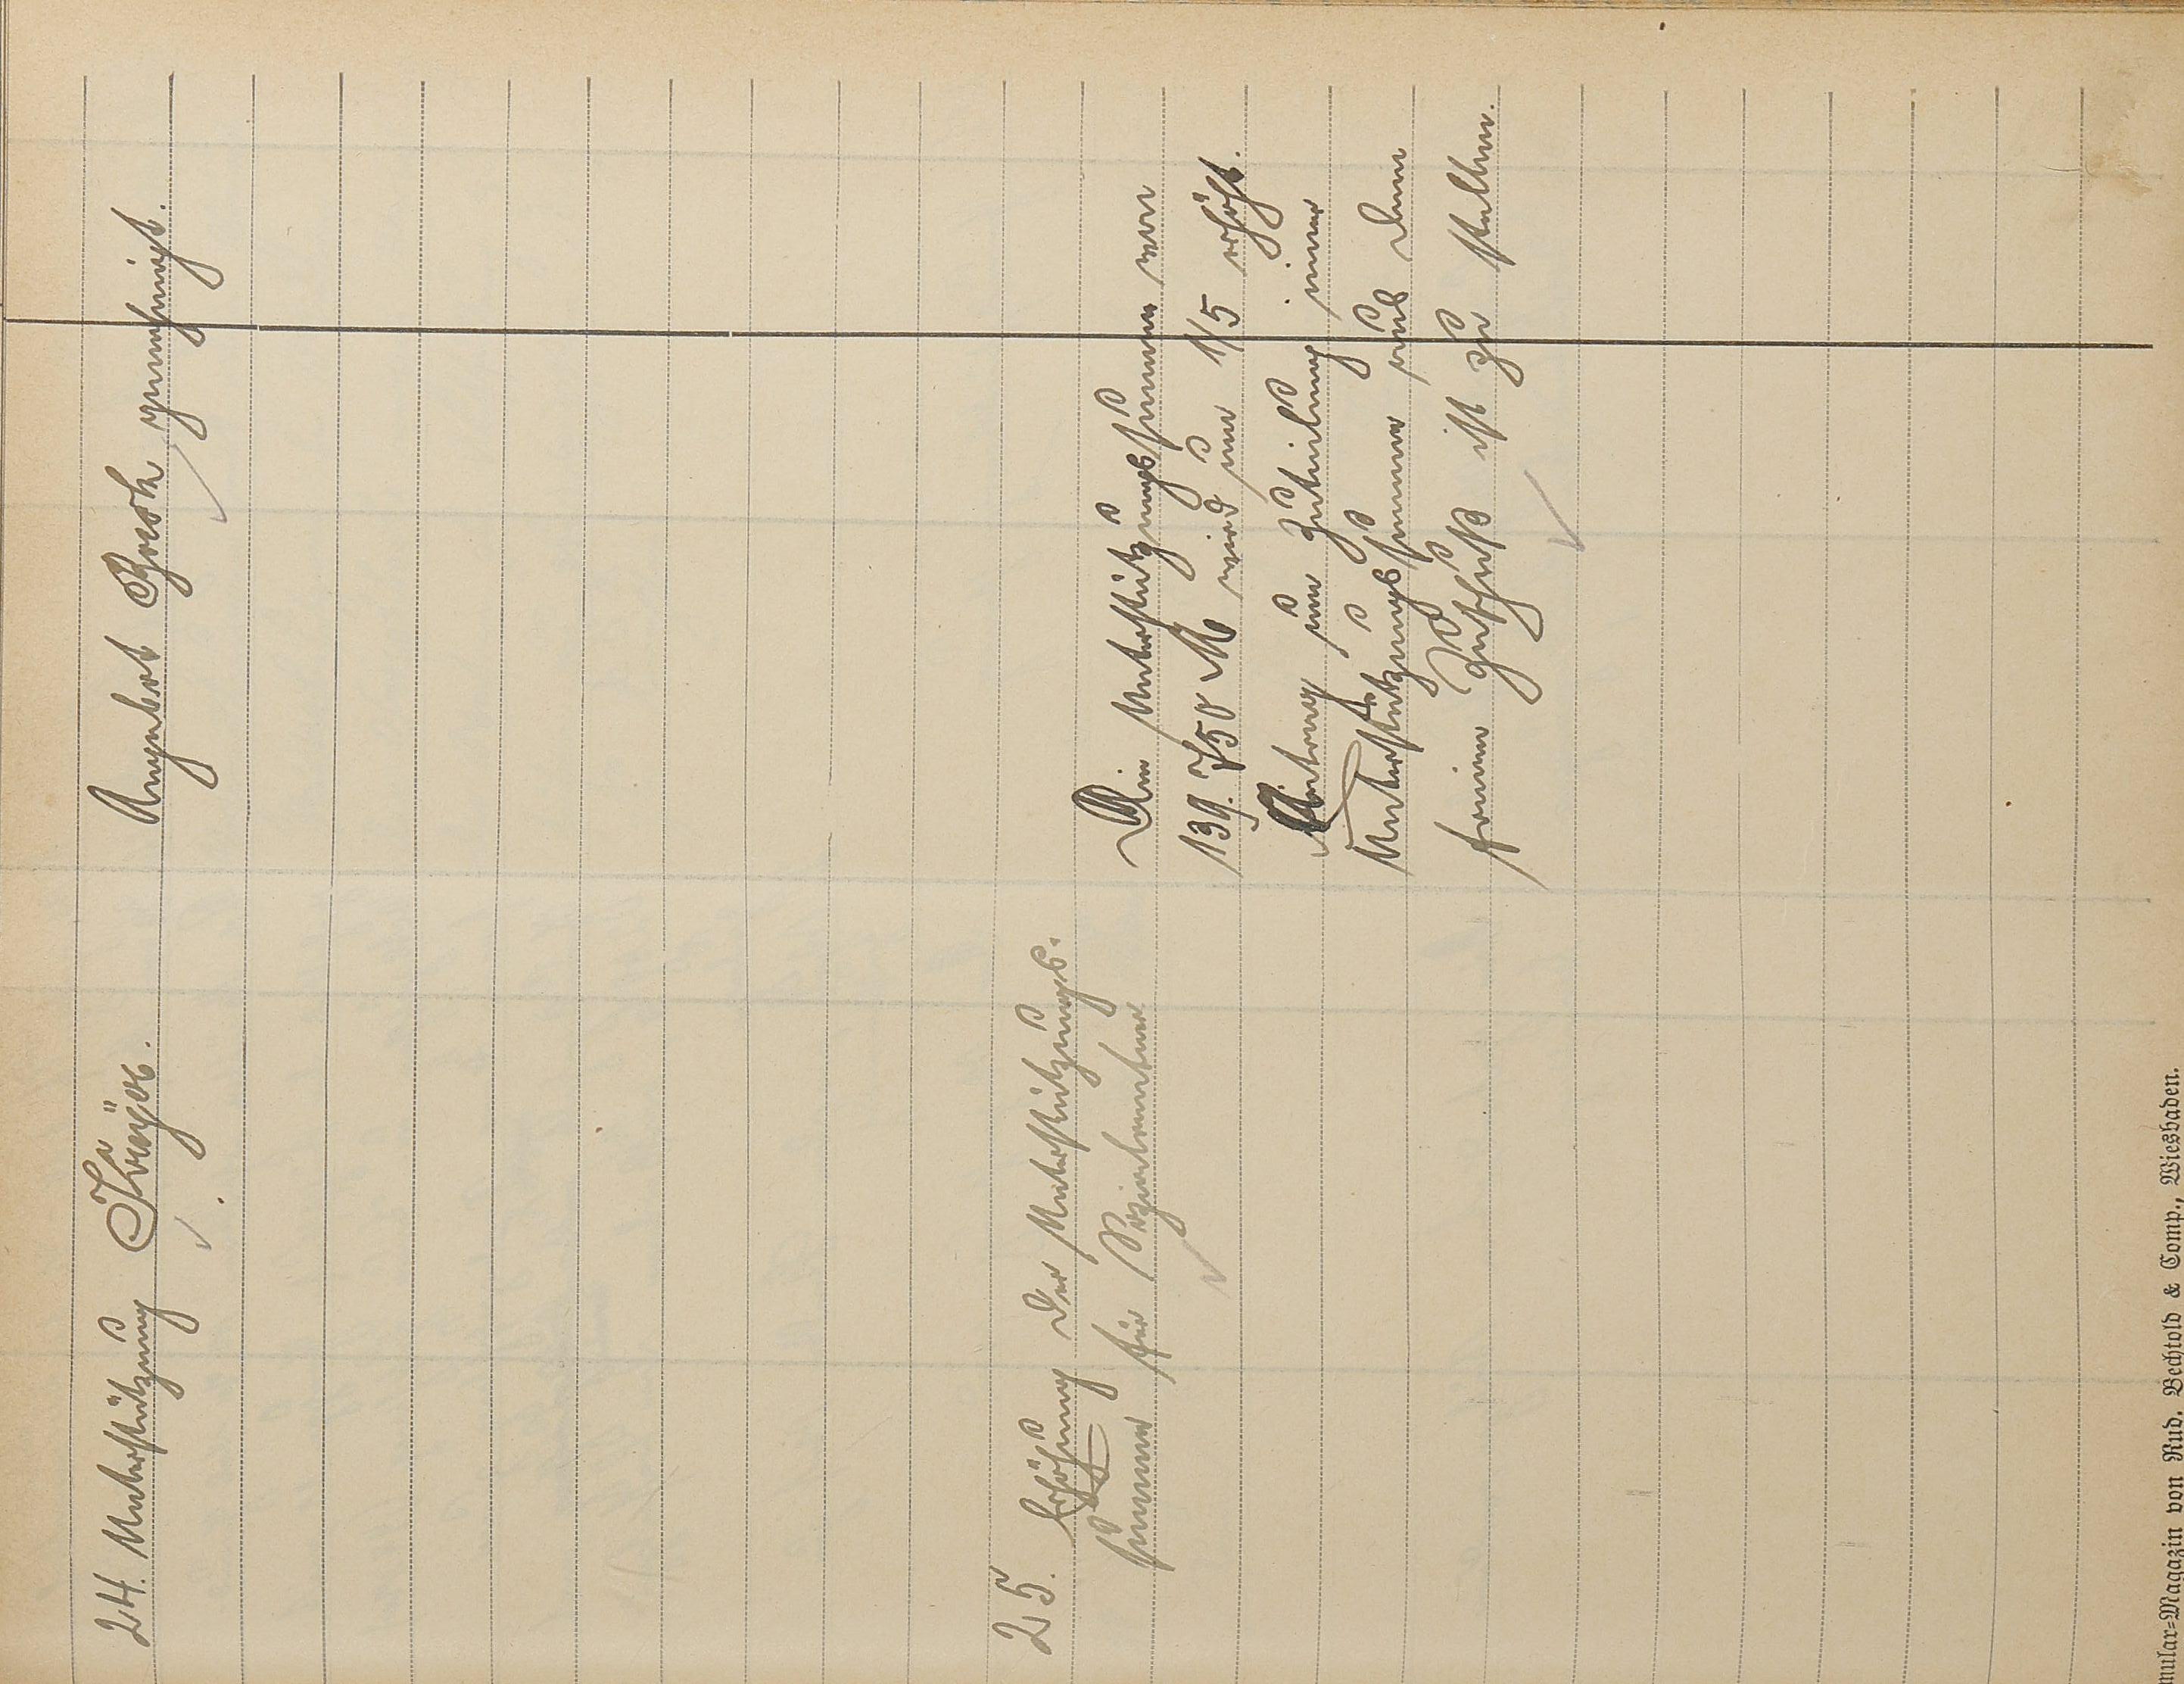 24. Unterstützung Krüger.
Angebot Brock genehmigt.
25. Erhöhung der Unterstützungs-
summe für
Die Unterstützungssumme von
139.750 M wird um 1/5 erhöht.
Antrag um Zuteilung einer
Unterstützungssumme aus dem
freien Zuschuß ist zu stellen.
mular=Magazin von Rud. Bechtold & Comp., Wiesbaden.